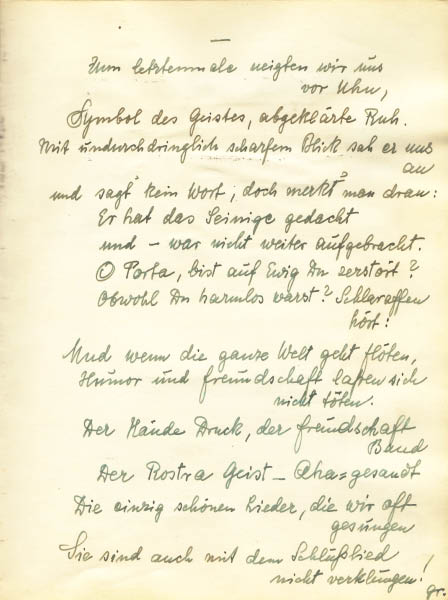 —
Zum letztenmale neigten wir uns
vor Uhu,
Symbol des Geistes, abgeklärte Ruh.
Mit undurchdringlich scharfem Blick sah er uns
an
und sagt' kein Wort, doch merkt' man dran:
Er hat das Seinige gedacht
und – war nicht weiter aufgebracht.
O Porta, bist auf Ewig Du zerstört?
Obwohl Du harmlos warst? Schlaraffen
hört:
Und wenn die ganze Welt geht flöten,
Humor und Freundschaft lassen sich
nicht töten.
Der Hände Druck, der Freundschaft
Band
Der Rostra Geist – Aha=gesandt
Die einzig schönen Lieder, die wir oft
gesungen
Sie sind auch mit dem Schlußlied
nicht verklungen!
gr.